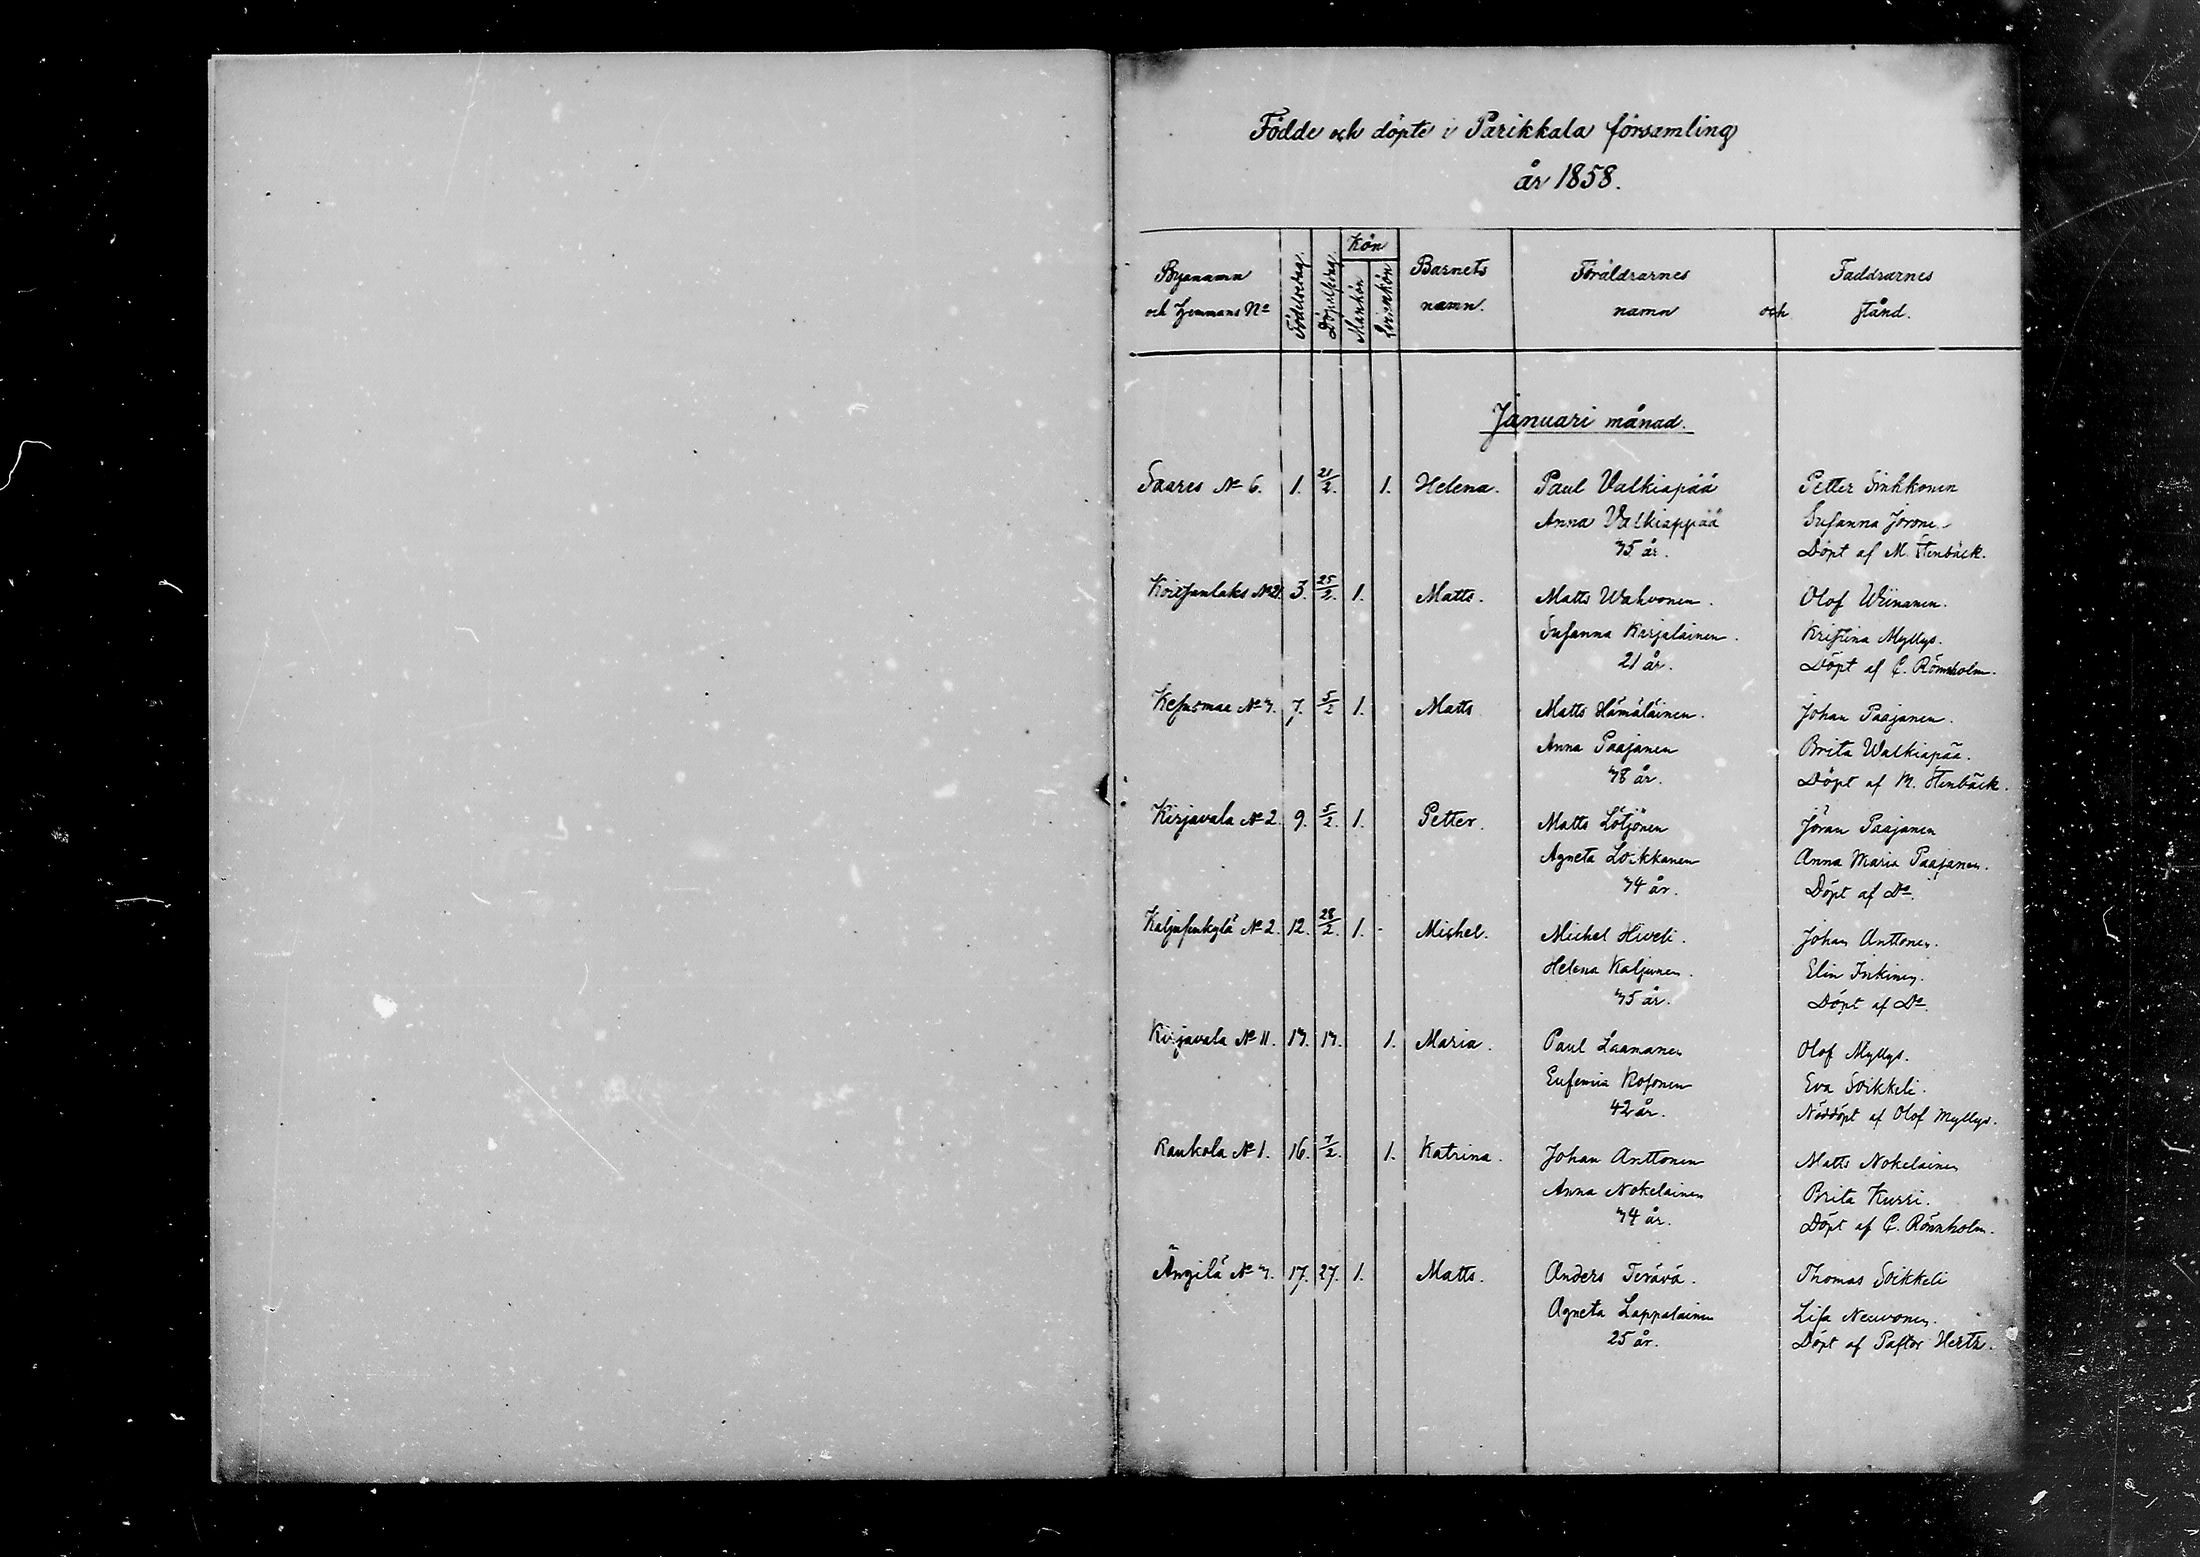 Födde och döpte i Parikkala församling
år 1858.
Kön
Byanamn
och Hemmans No
Födelsedag
Döpelsedag
Mankön
Qvinnkön
Barnets
namn.
Föräldrarnes
namn
och
Faddrarnes
stånd.
Januari månad.
Saares No 6. 1. 21/2. 1. Helena. Paul Valkiapää Petter Sinkkonen
Anna Valkiappää Susanna
35 år. Döpt af M. Stenbäck.
Koitsanlaks No 21. 3. 25/2. 1. Matts. Matts Wahvonen. Olof Wiinanen.
Susanna Karjalainen. Kristina Myllys.
21 år. Döpt af C. Rönnholm.
Kesusmaa No 3. 7. 5/2 1. Matts Matts Hämäläinen. Johan Paajanen.
Anna Paajanen Brita Walkiapää.
38 år. Döpt af M. Stenbäck.
Kirjavala No 2. 9. 5/2. 1. Petter. Matts Lötjönen Jöran Paajanen
Agneta Loikkanen Anna Maria Paajanen.
34 år. Döpt af Do.
Kaljusenkylä No 2. 12. 28/2. 1. Michel. Michel Hiveli. Johan Anttonen.
Helena Kaljunen. Elin Inkinen.
35 år. Döpt af Do.
Kirjavala No 11. 13. 13. 1. Maria. Paul Laananen Olof Myllys.
Eufemia Kosonen Eva Soikkeli.
42 år. Nöddöpt af Olof Myllys.
Raukola No 1. 16. 7/2. 1. Katrina. Johan Anttonen Matts Nokelainen
Anna Nokelainen Brita Kurri.
34 år. Döpt af C. Rönnholm.
Ängilä No 3. 17. 27. 1. Matts. Anders Terävä. Thomas Soikkeli
Agneta Lappalainen Lisa Neuvonen.
25 år. Döpt af Pastor Hertz.